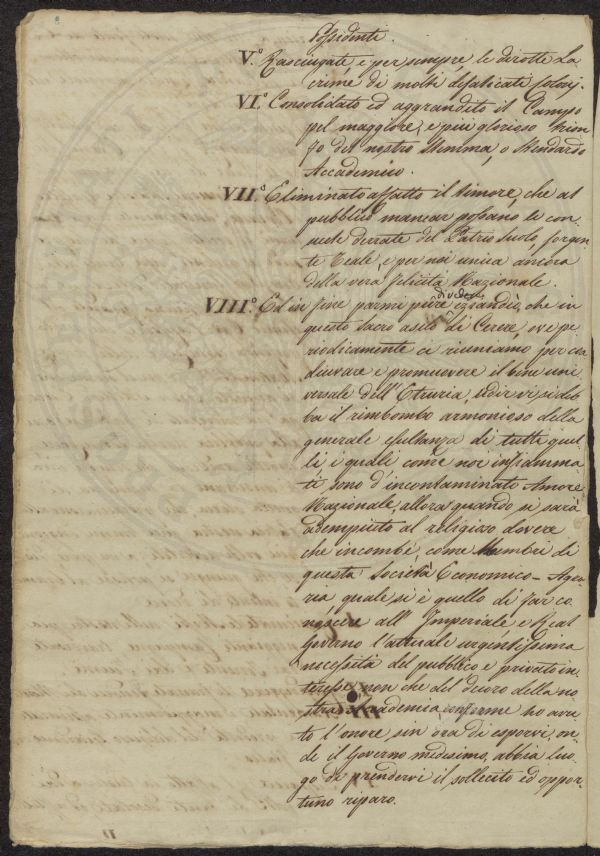 Possidenti.
V.° Rasciugate e per sempre le dirotte La
crime di molti defaticati
VI.° Consolidato ed aggrandito il Campo
pel maggiore, e più glorioso trion
fo del nostro Stemma, o Stendardo
Accademico.
VII.° Eliminato affatto il timore, che al
pubblico mancar possano le con
suete derrate del Patrio suolo, sorgen
te Reale, e per noi unica ancora
della vera felicità Nazionale.
VIII.° Ed in fine parmi di veder eziandio, che in
questo sacro asilo di Cerere, ove pe
riodicamente ci riuniamo per coa
diuvare e promuovere il bene uni
versale dell'Etruria, udir vi si deb
ba il rimbombo armonioso della
generale esultanza di tutti quel
li i quali come noi infiamma
ti sono d'incontaminato Amore
Nazionale, allora quando si sarà
adempiuto al religioso dovere
che incombe, come Membri di
questa Società Economico-Agra
ria, quale si è quello di far co
noscere all'Imperiale e Real
Governo l'attuale urgentissima
necessità del pubblico e privato in
teresse, non che del decoro della no
stra Accademia, conforme ho avu
to l'onore, sin' ora di esporvi, on
de il Governo medesimo, abbia luo
go di prendervi il sollecito ed oppor
tuno riparo.